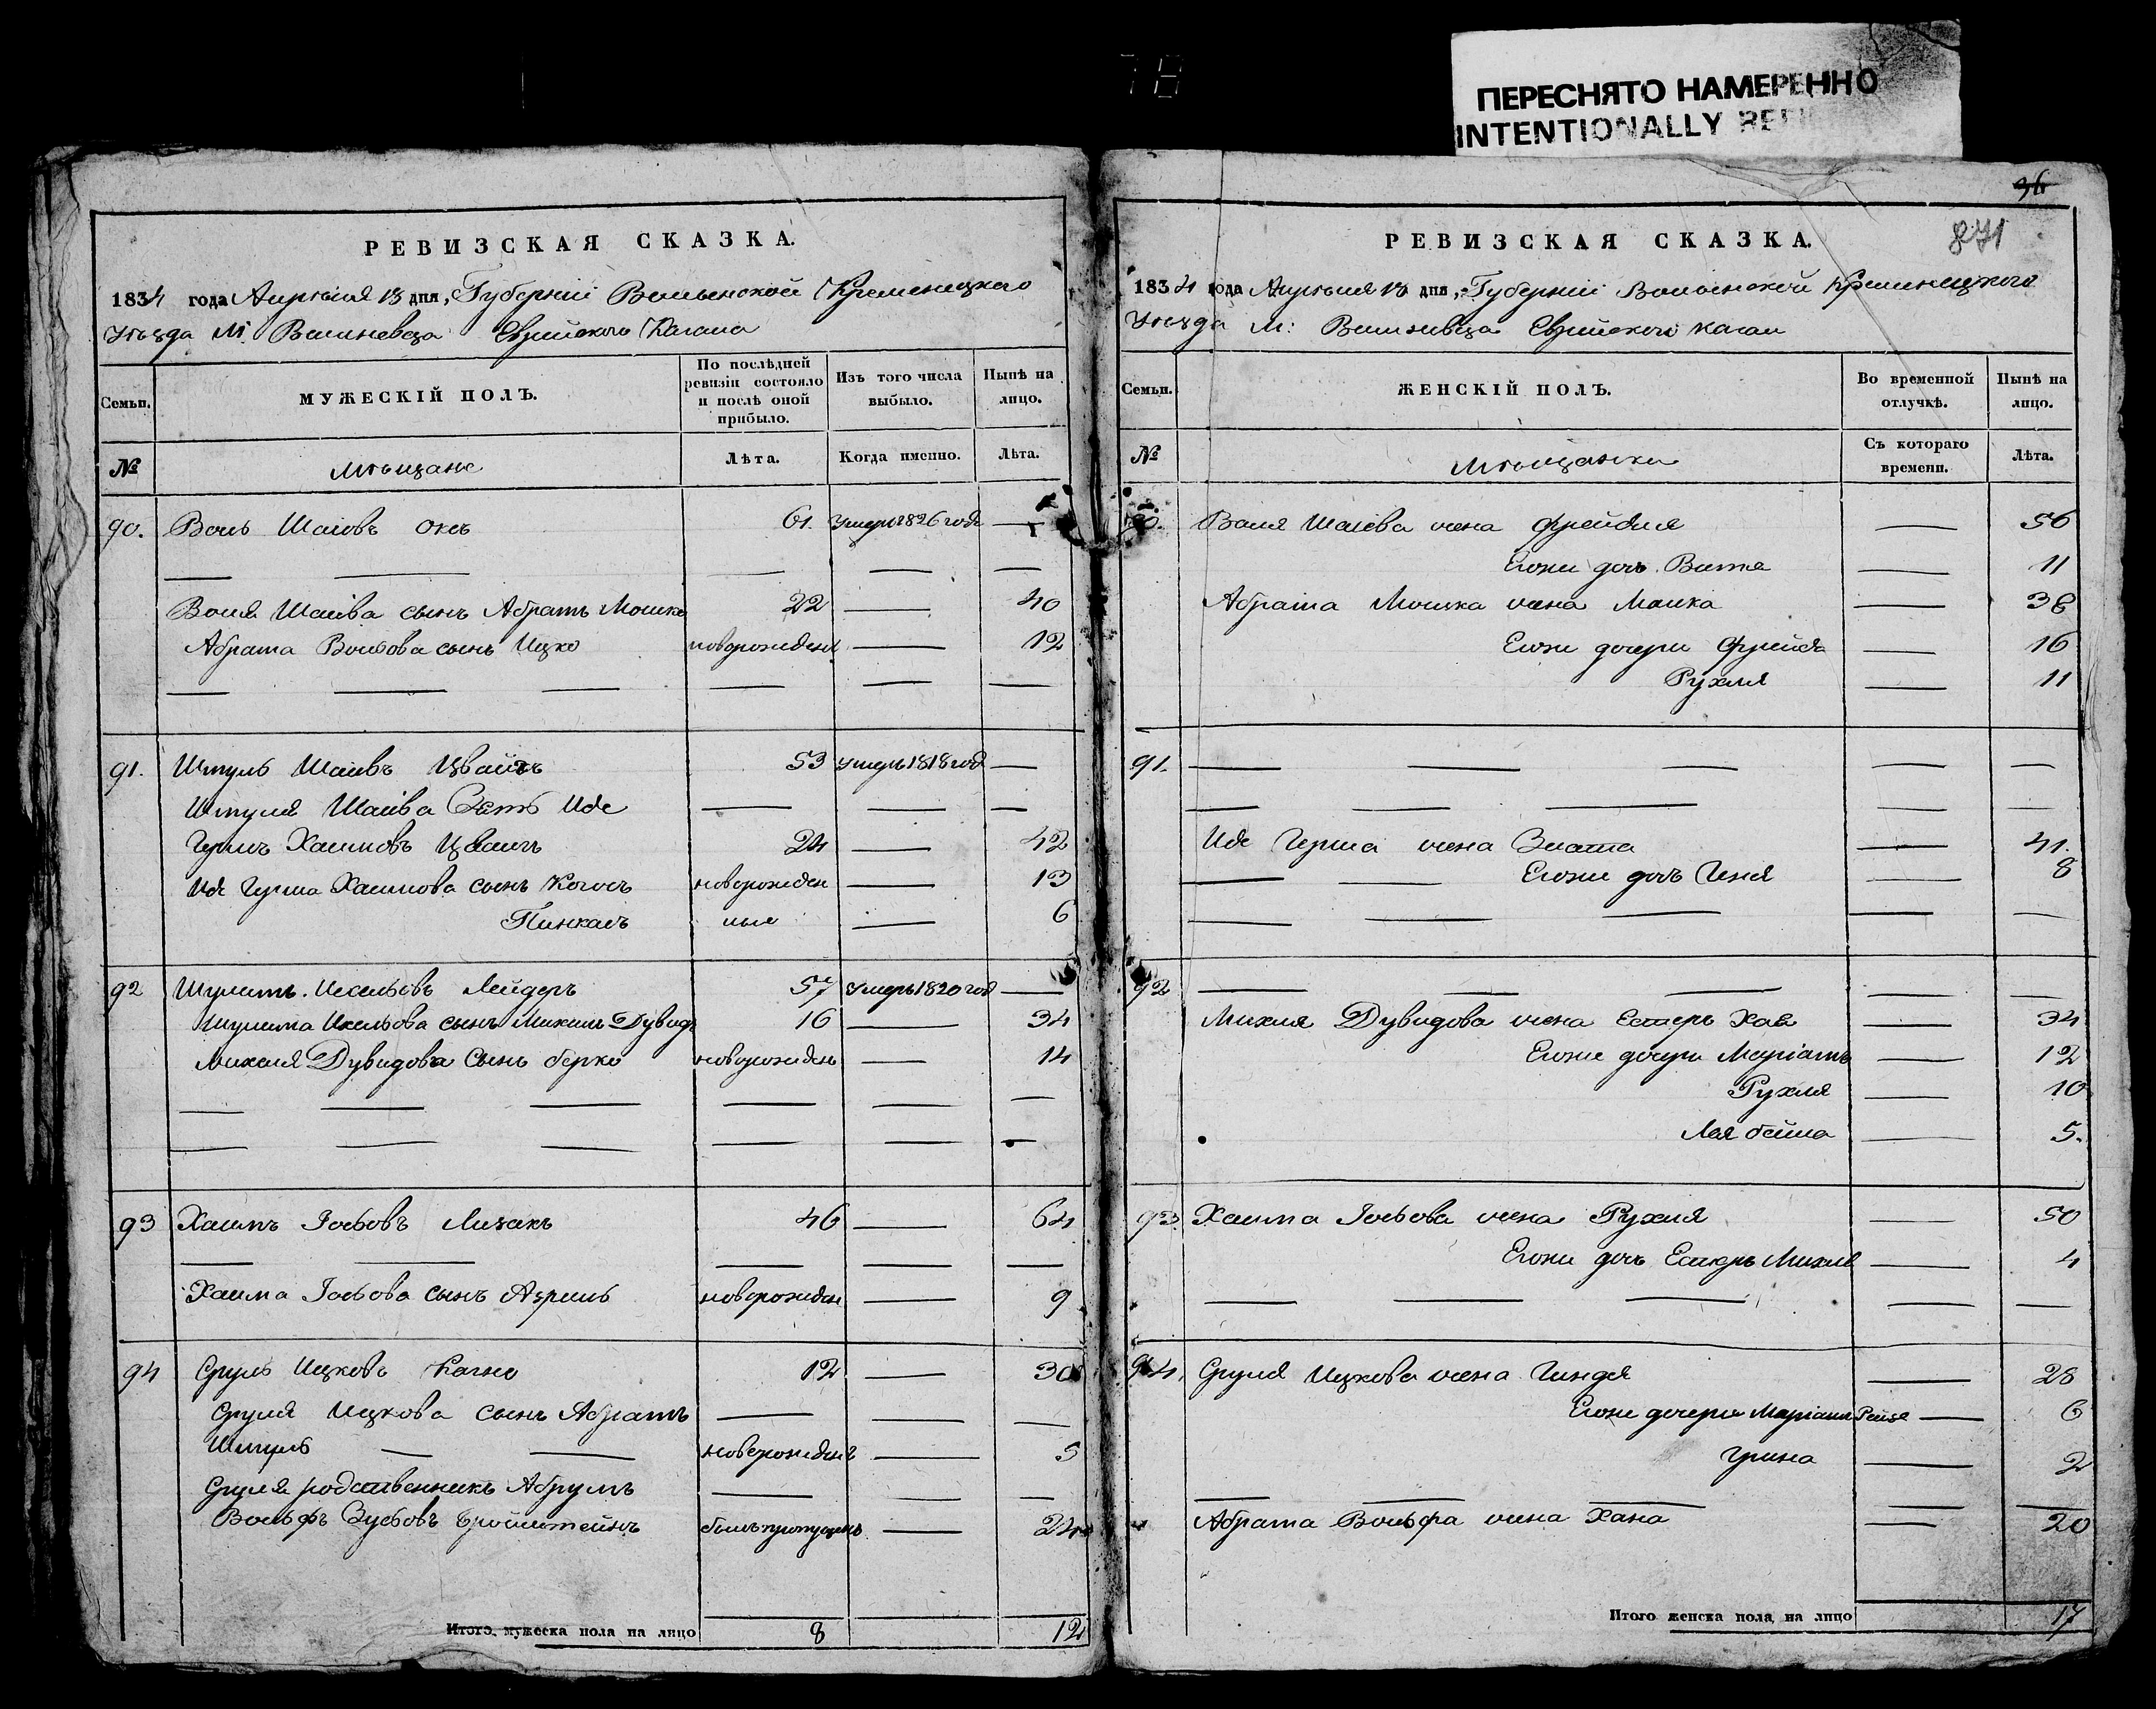 ПЕРЕСНЯТО НАМЕРЕННО
INTENTIONALLY
36
871
РЕВИЗСКАЯ СКАЗКА.
1834 года Апрѣля 13 дня, Губерніи Волынской Кременецкаго
Уѣзда М. Вишневца Еврейского Кагала
Семьи.
МУЖЕСКІЙ ПОЛЪ.
По послѣдней ревизіи состояло и послѣ оной прибыло.
Изъ того числа выбыло.
Нынѣ на лицо.
№
Мѣщане
Лѣта.
Когда именно.
Лѣта.
90. Воль Шаіовъ Окс 61. умеръ 1826 года —
— — — — —
Воля Шаіова сынъ Абрамъ Мошко 22 — 40
Абрама Вольова сынъ Ицко новорожден — 12
— — — — — —
91. Шмуль Шаіовъ Цвайгъ 53 умеръ 1818 год —
Шмуля Шаіова Зять Иде — — —
Гершъ Хаимовъ Цвайгъ 24 — 42
Иде Герша Хаимова сынъ новорожден — 13
Пинкасъ ные — 6
92 Шулимъ Лейдеръ 57 умеръ 1820 год —
Шулима сынъ Михель Дувидъ 16 — 34
Михеля Дувидова сынъ Берко новорожденъ — 14
— — — — — —
— — — — — —
93 Хаимъ Іосьовъ Лизакъ 46 — 64
— — — — —
Хаима Іосьова сынъ Азриль новорожден — 9
94 Сруль Ицковъ Кагно 12 — 30
Сруля Ицкова сынъ Абрамъ — — —
Шмуль — — новорожденъ — 5
Сруля родственникъ Абрумъ — — —
Вольфъ — 24
Итого мужеска пола на лицо 8 12
РЕВИЗСКАЯ СКАЗКА.
1834 года Апрѣля 13 дня, Губерніи Волынской Кременецкого
Уѣзда М: Вишневца Еврейского кагала
Семьи.
ЖЕНСКІЙ ПОЛЪ.
Во временной отлучкѣ.
Нынѣ на лицо.
№
Мѣщанки
Съ котораго времени.
Лѣта.
90. Воля Шаіева жена Фрейдля — 56
Егоже дочь Витя — 11
Абрама Мошка жена Малка — 38
Егоже дочери Фрейда — 16
Рухля — 11
91. — — — — —
— — — — —
Иде Герша жена Злата — 41.
— — Егоже дочь Геня — 8
— — — — —
92 — — — — —
Михля Дувидова жена Естеръ Хая — 34
Егоже дочери Маріамъ — 12
Рухля — 10
Лея Бейла — 5.
93 Хаима Іосьова жена Рухля — 50
Егоже дочь Естеръ Михля — 4
— — — — —
94. Сруля Ицкова жена Гиндя — 28
Егоже дочери Маріамъ Рейзя — 6
— 2
— — — — —
Абрама Вольфа жена Хана — 20
Итого женска пола на лицо 17